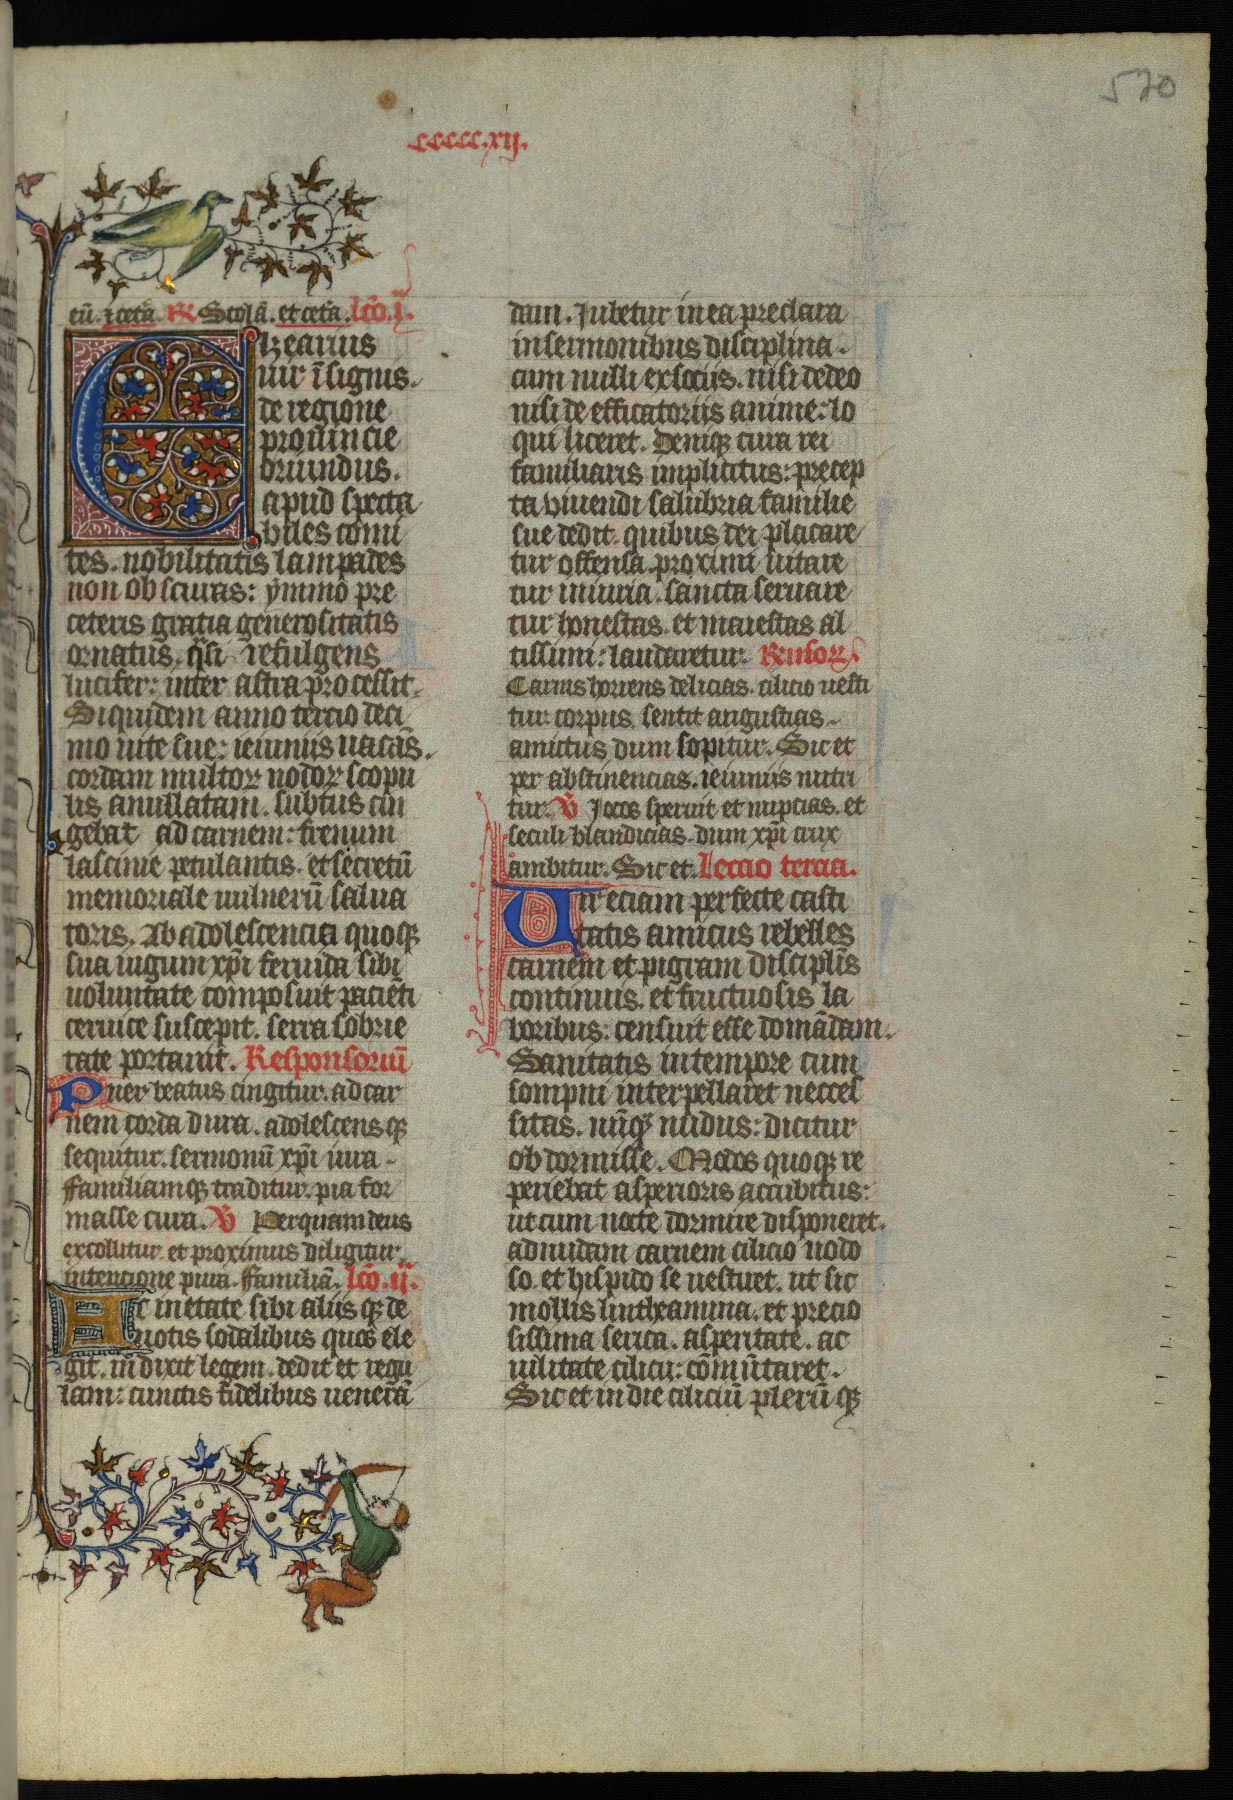 570
ccccc.xij.
cū. et cetā. R Scolā. et cetā. lcō. ī.
Elzearius
uir īsignis.
de regione
prouincie
oriundus.
apud specta
biles comi
tes. nobilitatis lampades
non obscuras: ymmo pre
ceteris gratia generositatis
ornatus. qͣsi refulgens
lucifer: inter astra processit.
Siquidem anno tercio deci
mo uite sue: ieiuniis uacās.
cordam multoꝝ nodoꝝ scopu
lis anullatam. subtus cin
gebat ad carnem: frenum
lasciuie petulantis. et secretū
memoriale uulnerū salua
toris. Ab adolescencia quoqꝫ
sua iugum xp̄i feruida sibi
uoluntate composuit paciēti
ceruice suscepit. serra sobrie
tate portauit. Responsoriū
Puer beatus cingitur. ad car
nem corda dura. adolescensqꝫ
sequitur. sermonū xp̄i iura
familiamqꝫ traditur. pia for
masse cura. V̄ Perquam deus
excolitur. et proximus diligitur.
intencione pura. Familiā. lcō. ij.
Hic in etate sibi aliisqꝫ de
uotis sodalibus quos ele
git. indixit legem. dedit et regu
lam: cunctis fidelibus uenerā
dam. Iubetur in ea preclara
in sermonibus disciplina.
cum nulli ex sociis. nisi de deo
nisi de efficatoriis anime: lo
qui liceret. Deniqꝫ cura rei
familiaris implicitus: precep
ta viuendi salubria familie
sue dedit. quibus dei placare
tur offensa. proximi uitare
tur iniuria. sancta seruare
tur honestas. et maiestas al
tissimi: laudaretur. Rnsoꝝ
Carnis horrens delicias. cilicio uesti
tur corpus. sentit angustias.
amictus dum sopitur. Sic et
per abstinencias. ieiuniis nutri
tur. V̄ Iocos spernit et nupcias. et
seculi blandicias. dum xp̄i crux
ambitur. Sic et. Leccio tercia.
Uir eciam perfecte casti
tatis amicus rebelles
carnem et pigram disciplīs
continuis. et fructuosis la
boribus: censuit esse domādam.
Sanitatis in tempore cum
sompni interpellaret necces
sitas. nūqꝫ nudus: dicitur
obdormisse. Modos quoqꝫ re
periebat asperioris accubitus:
ut cum nocte dormire disponeret.
ad nudam carnem cilicio nodo
so. et hispido se uestiret. ut sic
mollis lintheamina. et precio
sissima serica. asperitate. ac
uilitate cilicii: cōmūtaret.
Sic et in die ciliciū plerūqꝫ